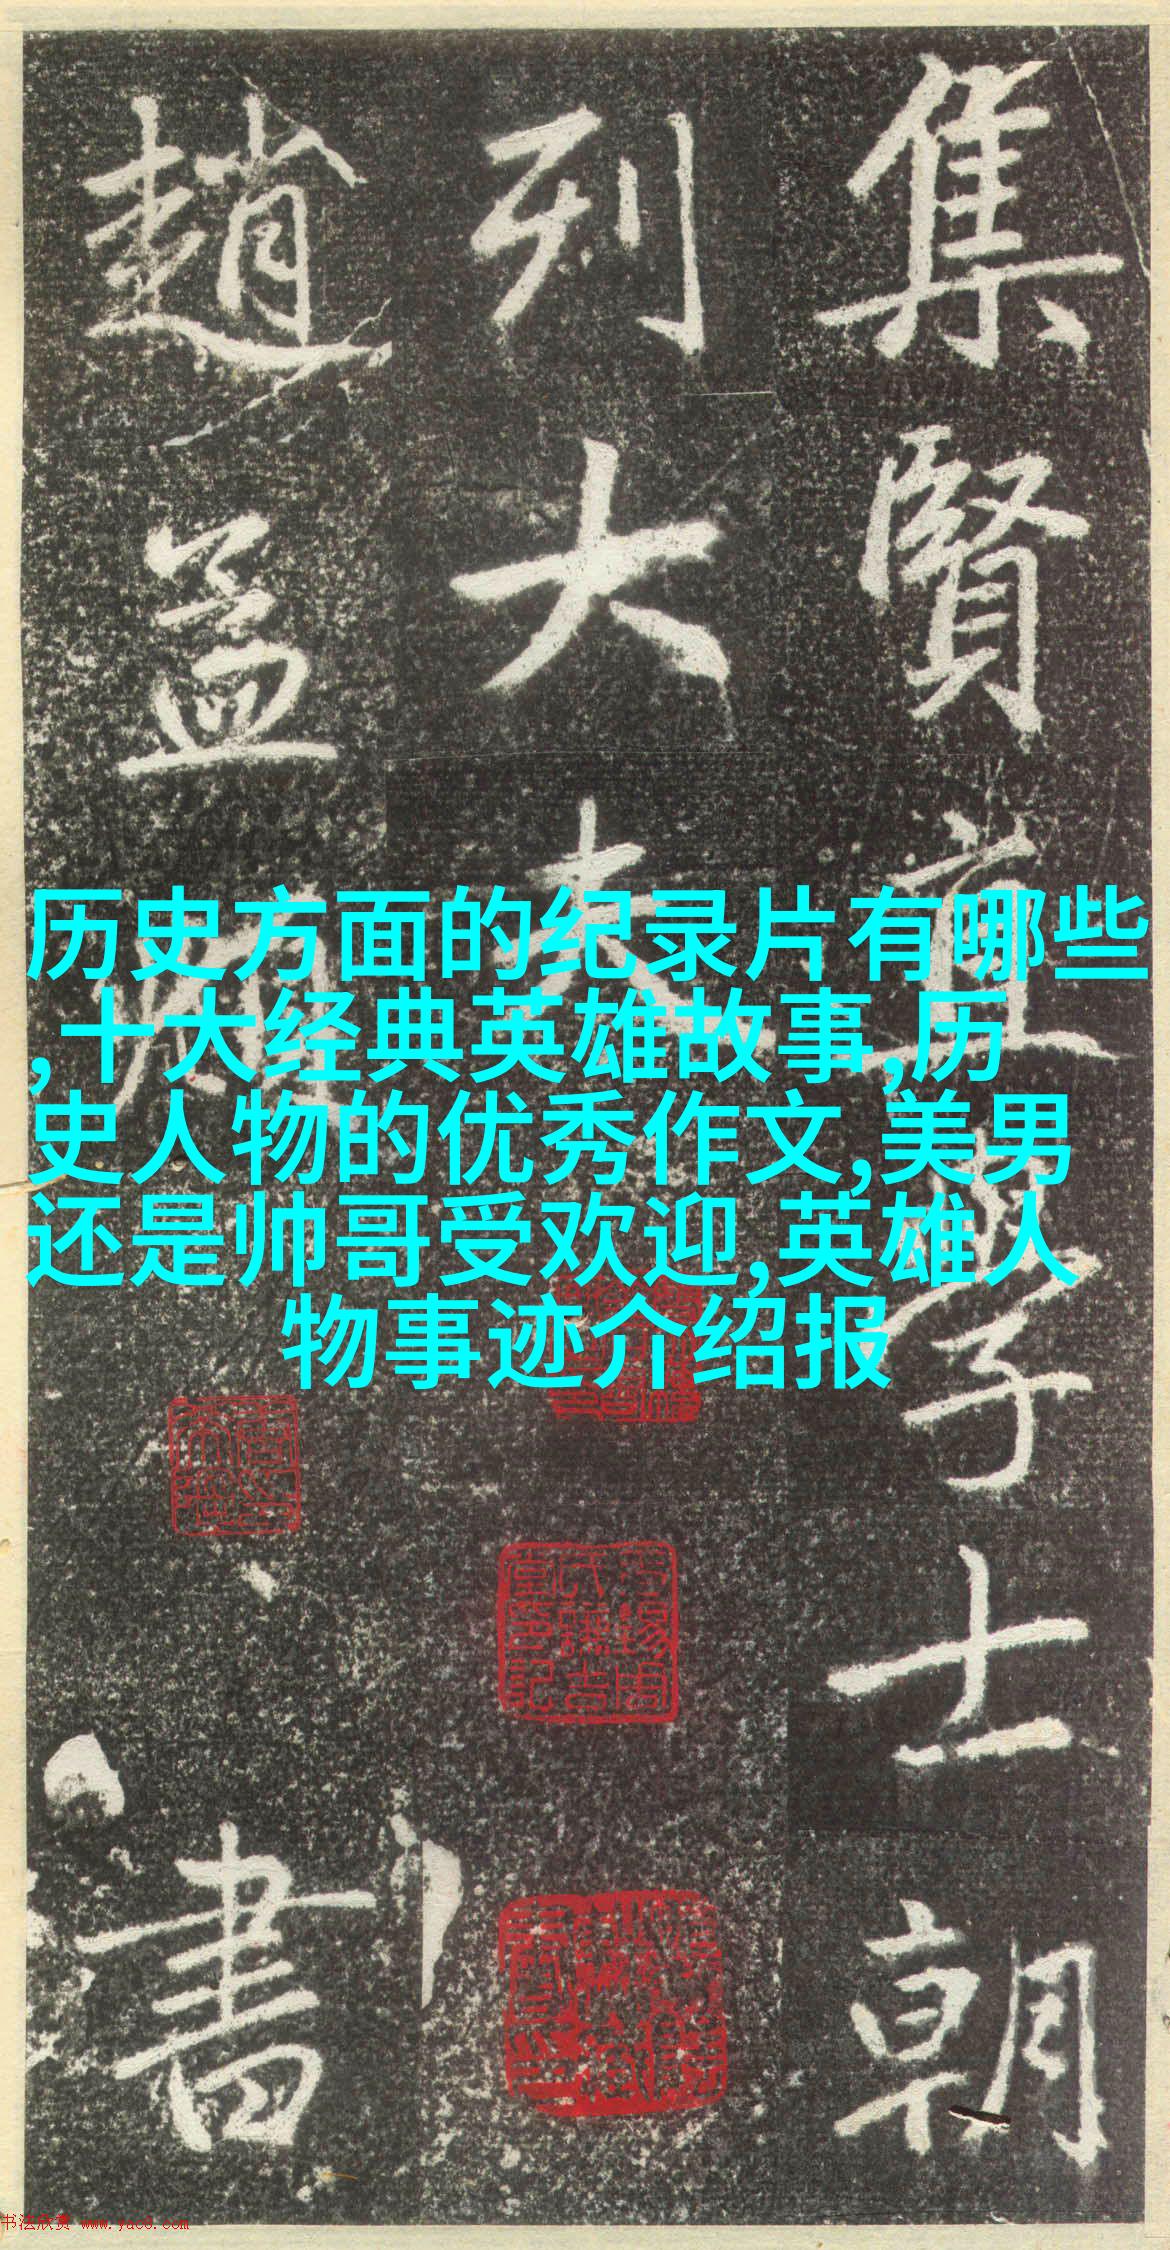 集賢直學士朝
列大夫
趙孟頫書
历史方面的纪录片有哪些
,十大经典英雄故事,历
史人物的优秀作文,美男
还是帅哥受欢迎,英雄人
物事迹介绍报
书法欣赏 www.yac8.com